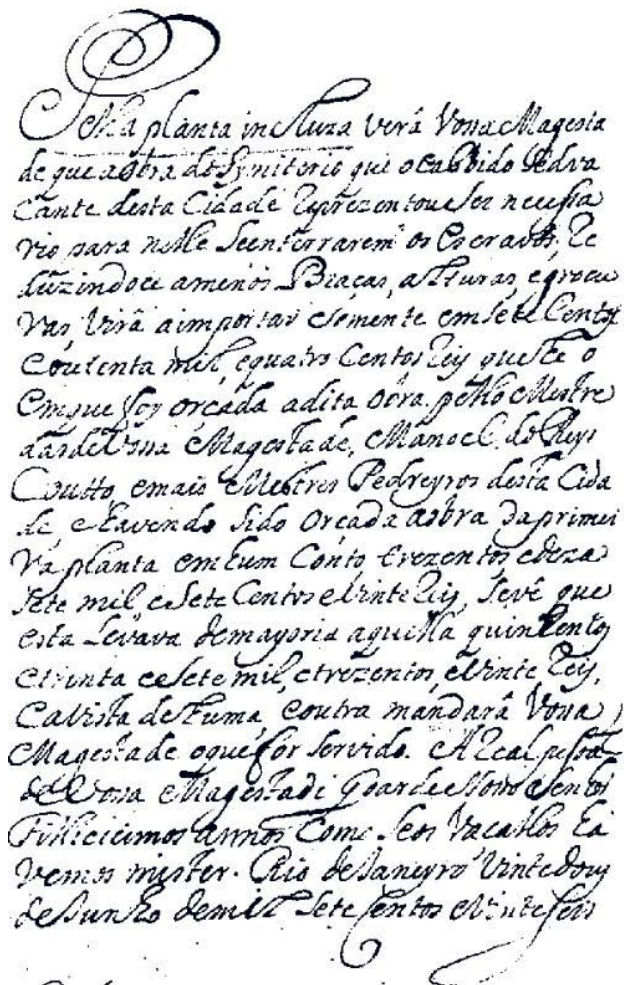 Pella planta incluza verâ Vossa Magesta
de que a obra do Symiterio que o Cabbido Sedva
Cante desta Cidade Reprezentou ser necessa
rio para nelle se enterrarem os Escravos, Re
duzindoce a menos Braças, alturas, e grocu
ras, virâ a importar sómente em sete Centos
e outenta mil, e quatro Centos Reis que he o
em que foy orçada a dita obra pello Mestre
das de Vossa Magestade, Manoel do Reys
Coutto, e mais Mestres Pedreyros desta Cida
de, e havendo sido orçada a obra da primei
ra planta em hum Conto, trezentos e deza
sete mil, e sete Centos e vinte Reis, se vê que
esta Levava demayoria aquella quinhentos
e trinta e sete mil, e trezentos, e vinte Reis,
e a vista de huma, e outra mandarâ Vossa
Magestade o que for servido. A Real pessoa
de Vossa Magestade Goarde Nosso Senhor
Fillicicimos annos Como Seos Vacallos ha
vemos mister. Rio de Janeyro Vinte dous
de Junho de mil sete Centos e vinte seis